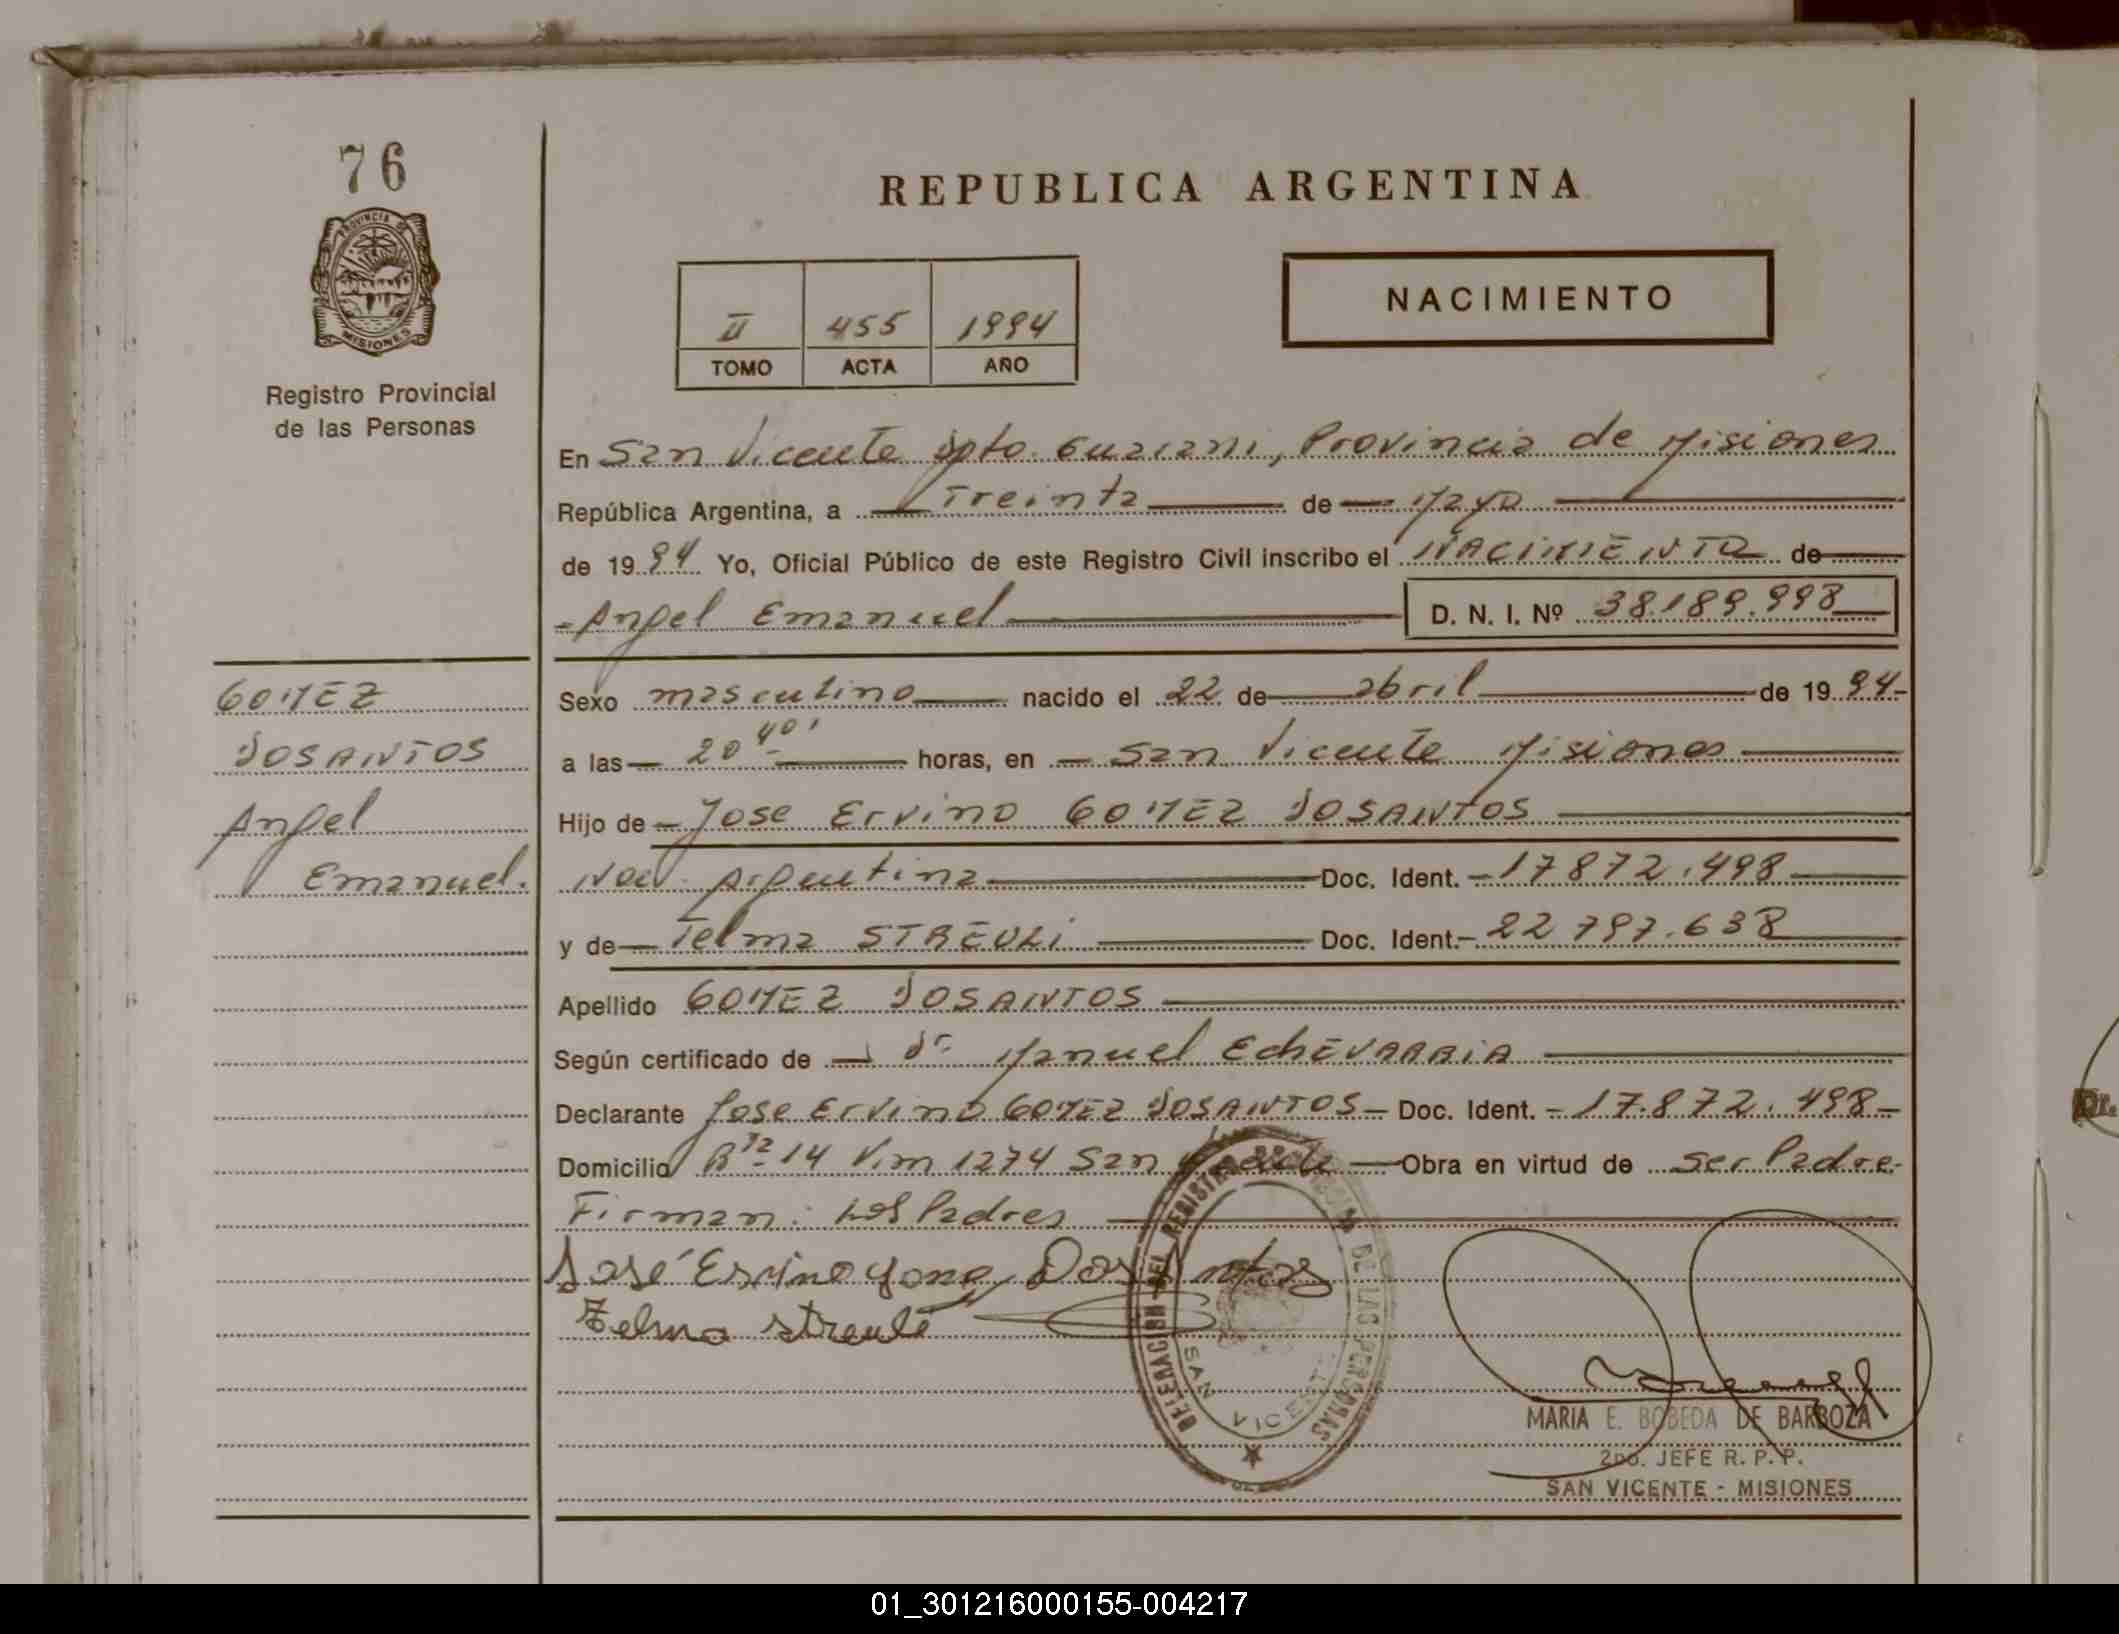 76
PROVINCIA DE
MISIONES
Registro Provincial
de las Personas
REPUBLICA ARGENTINA
II 455 1994
TOMO ACTA AÑO
NACIMIENTO
En San Vicente Dpto. Guarani, Provincia de Misiones
República Argentina, a Treinta de Mayo
de 19 94 Yo, Oficial Público de este Registro Civil inscribo el NACIMIENTO de
Angel Emanuel D. N. I. Nº 38.189.998
GOMEZ
DOSANTOS
Angel
Emanuel.
Sexo masculino nacido el 22 de abril de 19 94
a las 20 40' horas, en San Vicente Misiones
Hijo de Jose Ervino GOMEZ DOSANTOS
Nac. Argentina Doc. Ident. 17872.498
y de Telma STREULI Doc. Ident. 22797.638
Apellido GOMEZ DOSANTOS
Según certificado de Dr. Manuel EchEVARRIA
Declarante Jose Ervino GOMEZ DOSANTOS Doc. Ident. 17.872.498
Domicilio Rta 14 Km 1274 San Vicente Obra en virtud de ser Padre
Firman: Los Padres
José Ervino Dos Santos
Telma
DELEGACIÓN DEL REGISTRO PROVINCIAL DE LAS PERSONAS
SAN VICENTE
MARIA E. BOBEDA DE BARBOZA
2do. JEFE R. P. P.
SAN VICENTE - MISIONES
Dr.
01_301216000155-004217